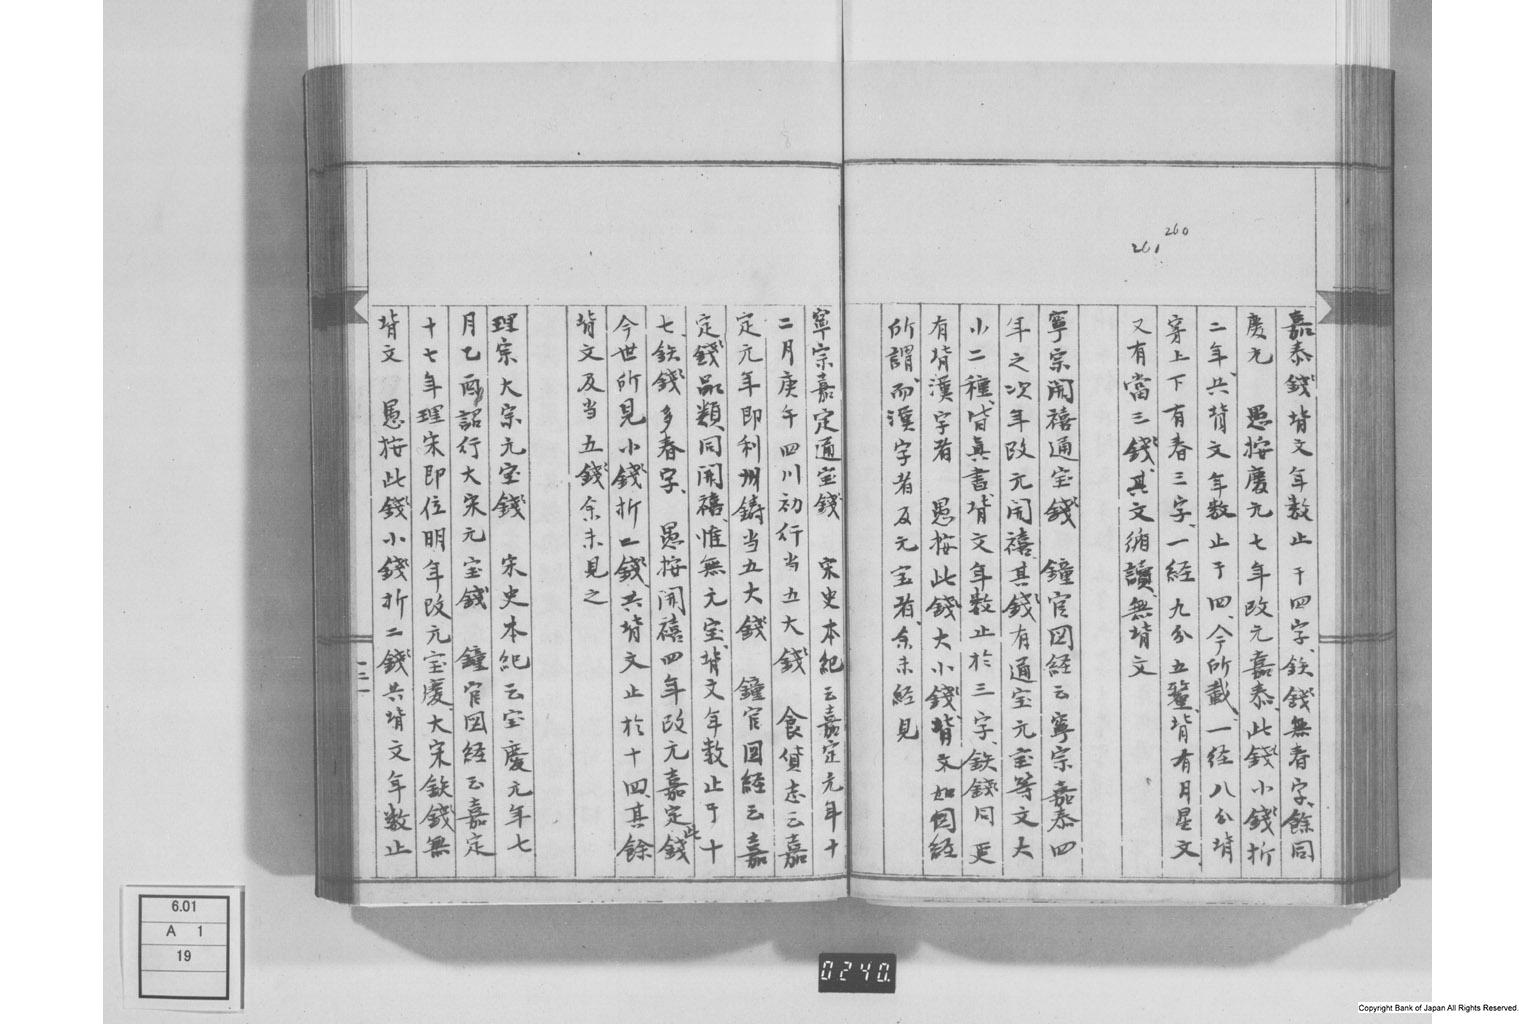 260
261
嘉泰錢背文年数止于四字、鉄錢無春字、餘同
慶元　愚按慶元七年改元嘉泰、此錢小錢折
二年、共背文年数止于四、今所載、一経八分背
穿上下有春三字、一経九分五釐、背有月星文、
又有當三錢、其文循讀、無背文
寧宗開禧通宝錢　鐘官図経云寧宗嘉泰四
年之次年改元開禧、其錢有通宝元宝等文大
小二種、皆真書、背文年数止於三字、鉄錢同更
有背漢字者　愚按此錢大小錢、背文如図経
所謂、而漢字者及元宝者、余未経見
寧宗嘉定通宝錢　宋史本紀云嘉定元年十
二月庚午四川初行当五大錢　食貨志云嘉
定元年即利州鋳当五大錢　鐘官図経云嘉
定錢品類同開禧、惟無元宝、背文年数止于十
七、鉄錢多春字、愚按開禧四年改元嘉定此錢
今世所見小錢折二錢、共背文止於十四、其餘
背文及当五錢余未見之
理宗大宗元宝錢　宋史本紀云宝慶元年七
月乙酉詔行大宋元宝錢　鐘官図経云嘉定
十七年理宋即位明年改元宝慶、大宋鉄錢無
背文　愚按此錢小錢折二錢共背文年数止
二二
6.01
A 1
19
0240.
Copyright Bank of Japan All Rights Reserved.